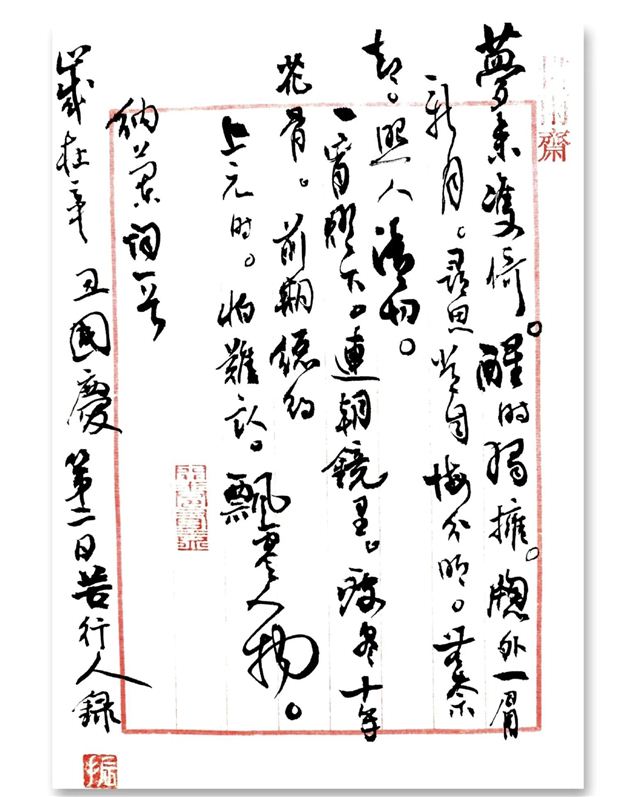 齋
夢來雙倚。醒時獨擁。牕外一眉
新月。尋思常自悔分明。無奈
却。照人清切。
一宵燈下。連朝鏡里。瘦盡十年
花骨。前期總約
上元時。怕難認。飄零人物。
納蘭詞一首
歲在辛丑國慶第二日苦行人錄